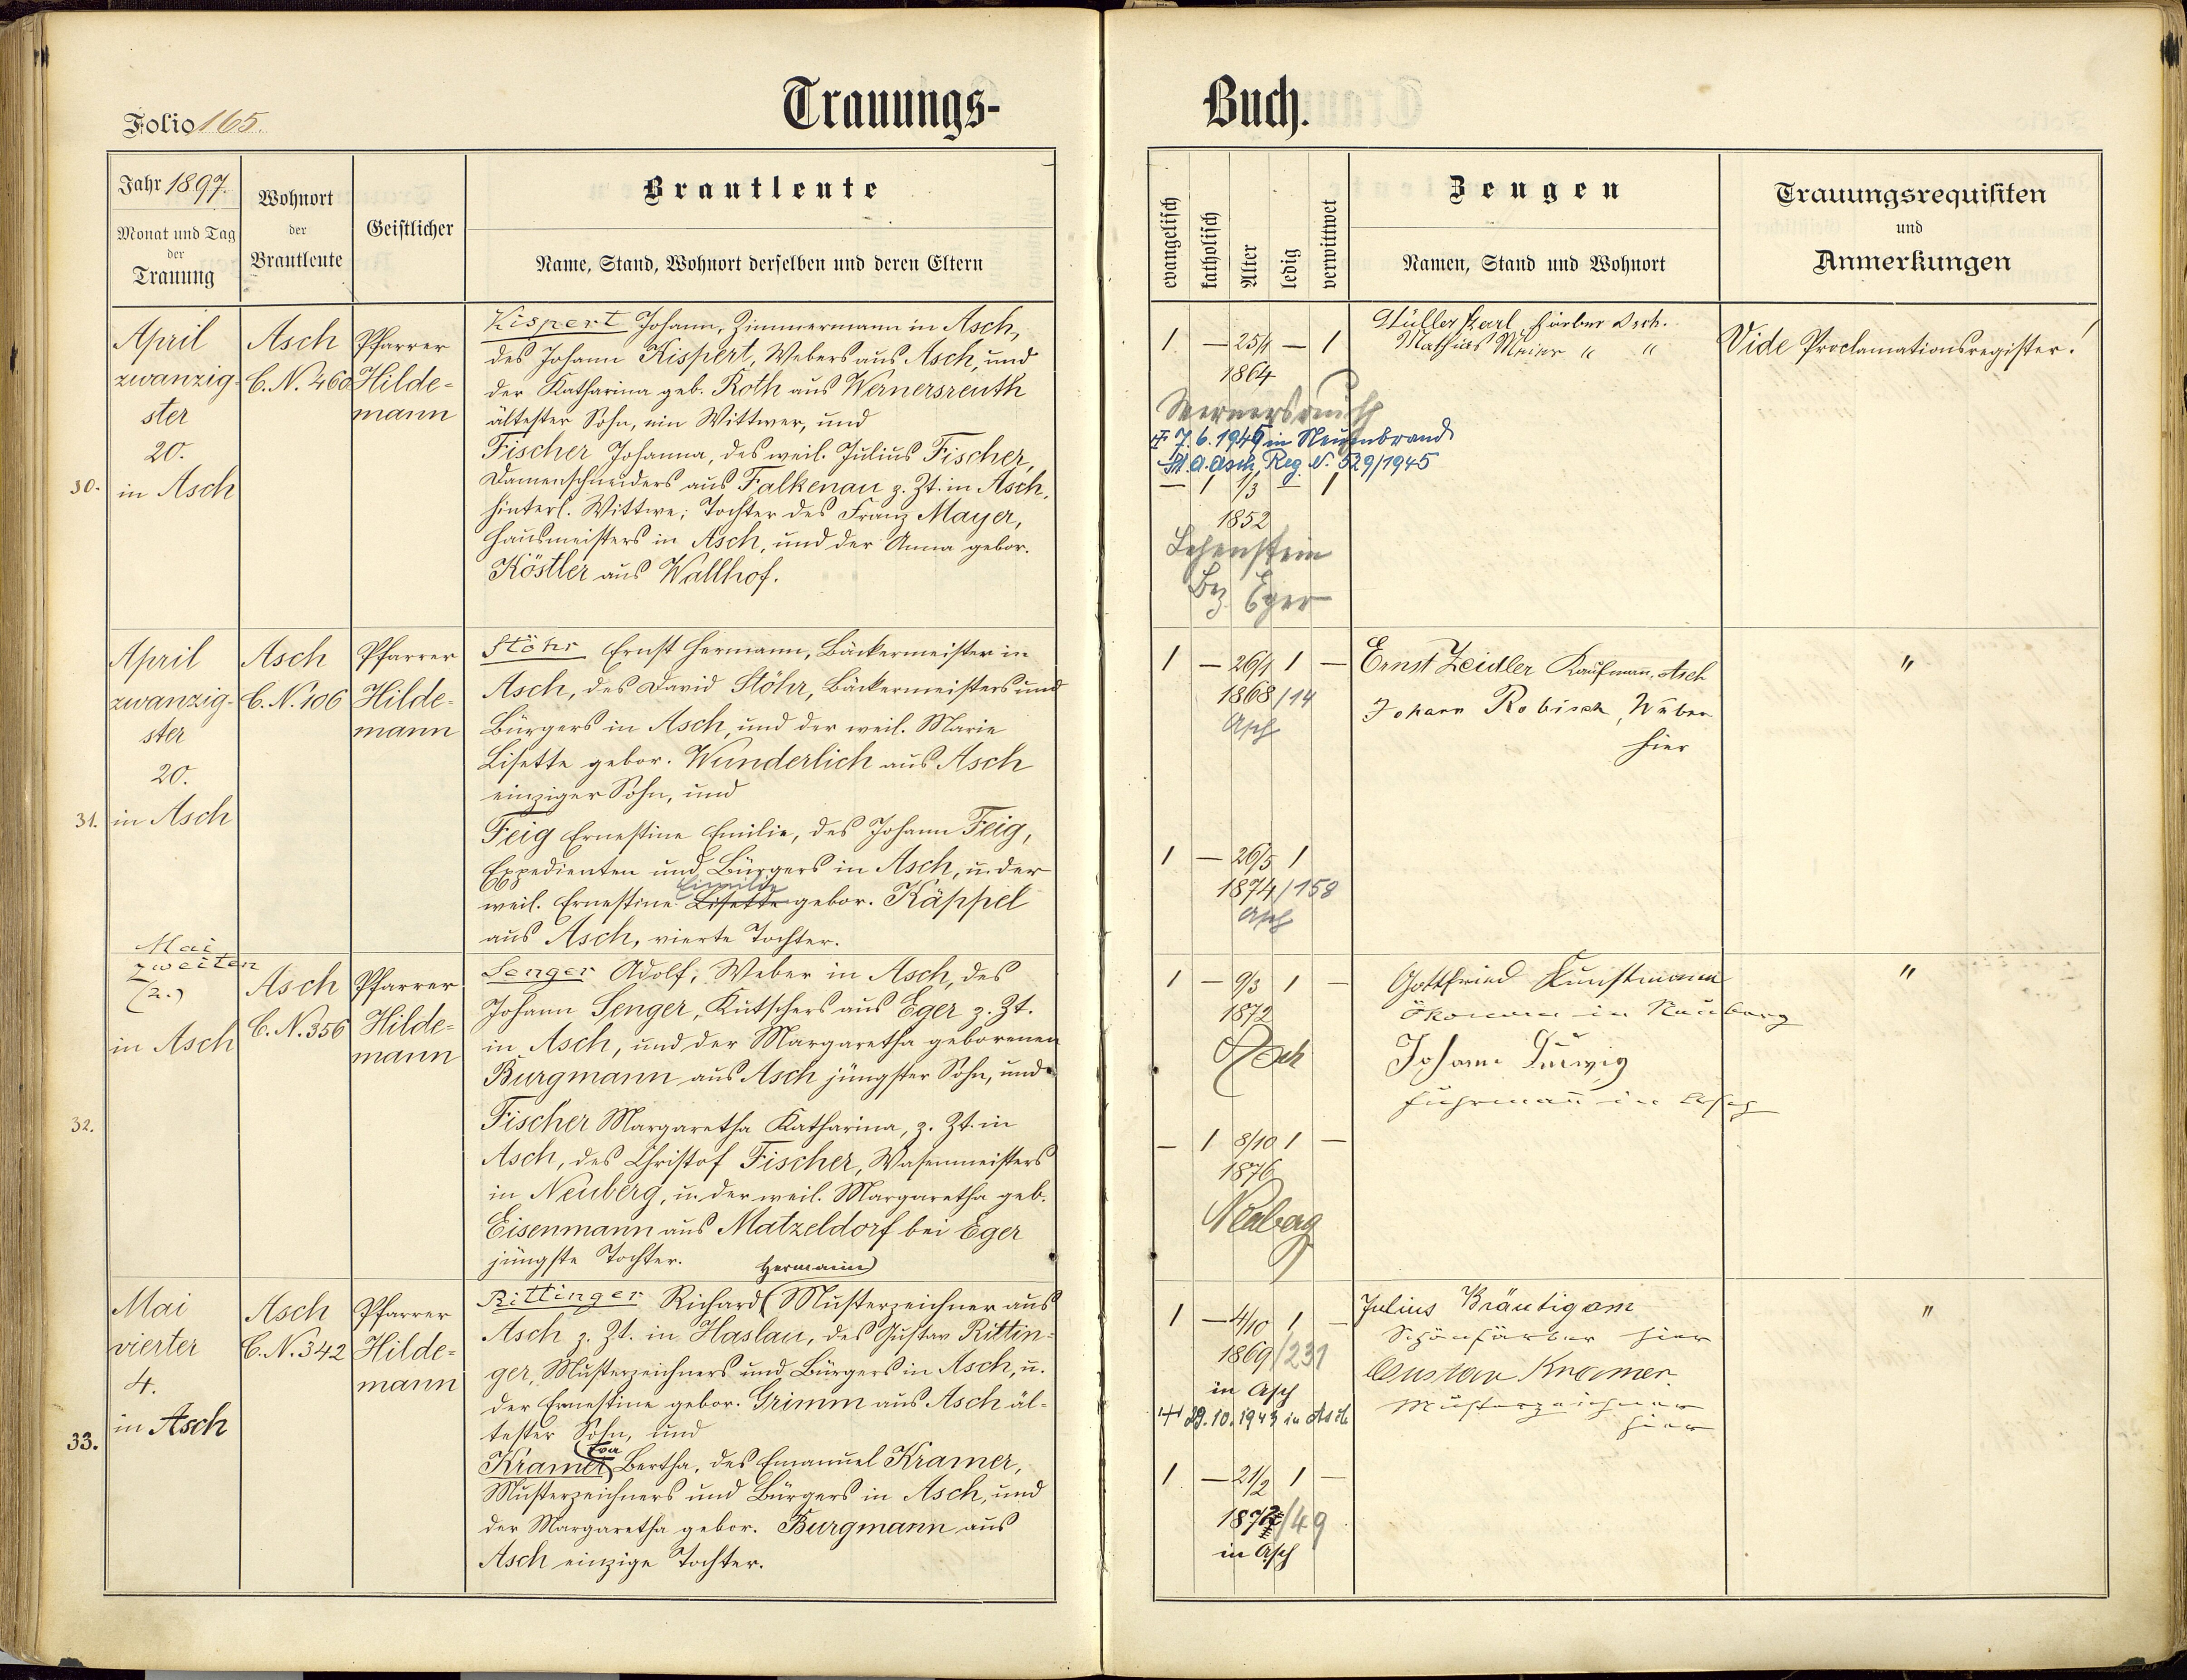 Trauungs-
Buch.
Folio 165.
Jahr 1897.
Monat und Tag
der
Trauung
Wohnort
der
Brautleute
Geistlicher
Brautleute
Name, Stand, Wohnort derselben und deren Eltern
evangelisch
katholisch
Alter
ledig
verwittwet
Zeugen
Namen, Stand und Wohnort
Trauungsrequisiten
und
Anmerkungen
30.
April
zwanzig-
ster
20.
in Asch
Asch
C. N. 460
Pfarrer
Hilde-
mann
Kispert Johann, Zimmermann in Asch,
des Johann Kispert, Webers aus Asch, und
der Katharina geb. Roth aus Wernersreuth
ältester Sohn, ein Wittwer, und
Fischer Johanna, des weil. Julius Fischer,
Damenschneiders aus Falkenau z. Zt. in Asch,
hinterl. Wittwe; Tochter des Franz Mayer,
Hausmeisters in Asch, und der Anna gebor.
Köstler aus Wallhof.
1 — 25/4 — 1
1864
Wernersreuth
7. 6. 1945 in Neuenbrand
St. A. Asch, Reg. N. 529/1945
— 1 1/3 — 1
1852
Lehenstein
Bez. Eger
Müller Karl Färber Asch.
Mathias Meier " "
Vide Proclamationsregister!
31.
April
zwanzig-
ster
20.
in Asch
Asch
C. N. 106
Pfarrer
Hilde-
mann
Stöhr Ernst Hermann, Bäckermeister in
Asch, des David Stöhr, Bäckermeisters und
Bürgers in Asch, und der weil. Marie
Lisette gebor. Wunderlich aus Asch
einziger Sohn, und
Feig Ernestine Emilie, des Johann Feig,
Expedienten und Bürgers in Asch, u. der
668 Emilie
weil. Ernestine Lisette gebor. Käppel
aus Asch, vierte Tochter.
1 — 26/4 1 —
1868/14
Asch
1 — 26/5 1
1874/158
Asch
Ernst Zeidler Kaufmann, Asch
Johann Robisch, Weber
hier
"
32.
Mai
zweiten
(2.)
in Asch
Asch
C. N. 356
Pfarrer
Hilde-
mann
Senger Adolf, Weber in Asch, des
Johann Senger, Kutschers aus Eger z. Zt.
in Asch, und der Margaretha geborenen
Burgmann aus Asch jüngster Sohn, und
Fischer Margaretha Katharina, z. Zt. in
Asch, des Christof Fischer, Wasenmeisters
in Neuberg, u. der weil. Margaretha geb.
Eisenmann aus Matzeldorf bei Eger
jüngste Tochter.
1 — 9/3 1 —
1872
Asch
— 1 8/10 1 —
1876
Neuberg
Gottfried Kunstmann
Ökonom in Neuberg
Johann Ludwig
Fuhrmann in Asch
"
33.
Mai
vierter
4.
in Asch
Asch
C. N. 342
Pfarrer
Hilde-
mann
Hermann
Rittinger Richard Musterzeichner aus
Asch z. Zt. in Haslau, des Gustav Rittin-
ger, Musterzeichners und Bürgers in Asch, u.
der Ernestine gebor. Grimm aus Asch äl-
tester Sohn, und
Eva
Kramer Bertha, des Emanuel Kramer,
Musterzeichners und Bürgers in Asch, und
der Margaretha gebor. Burgmann aus
Asch einzige Tochter.
1 — 4/10 1 —
1869/231
in Asch
29. 10. 1943 in Asch
1 — 21/2 1 —
/49
in Asch
Julius Bräutigam
Schönfärber hier
Gustav Kramer.
Musterzeichner
hier
"